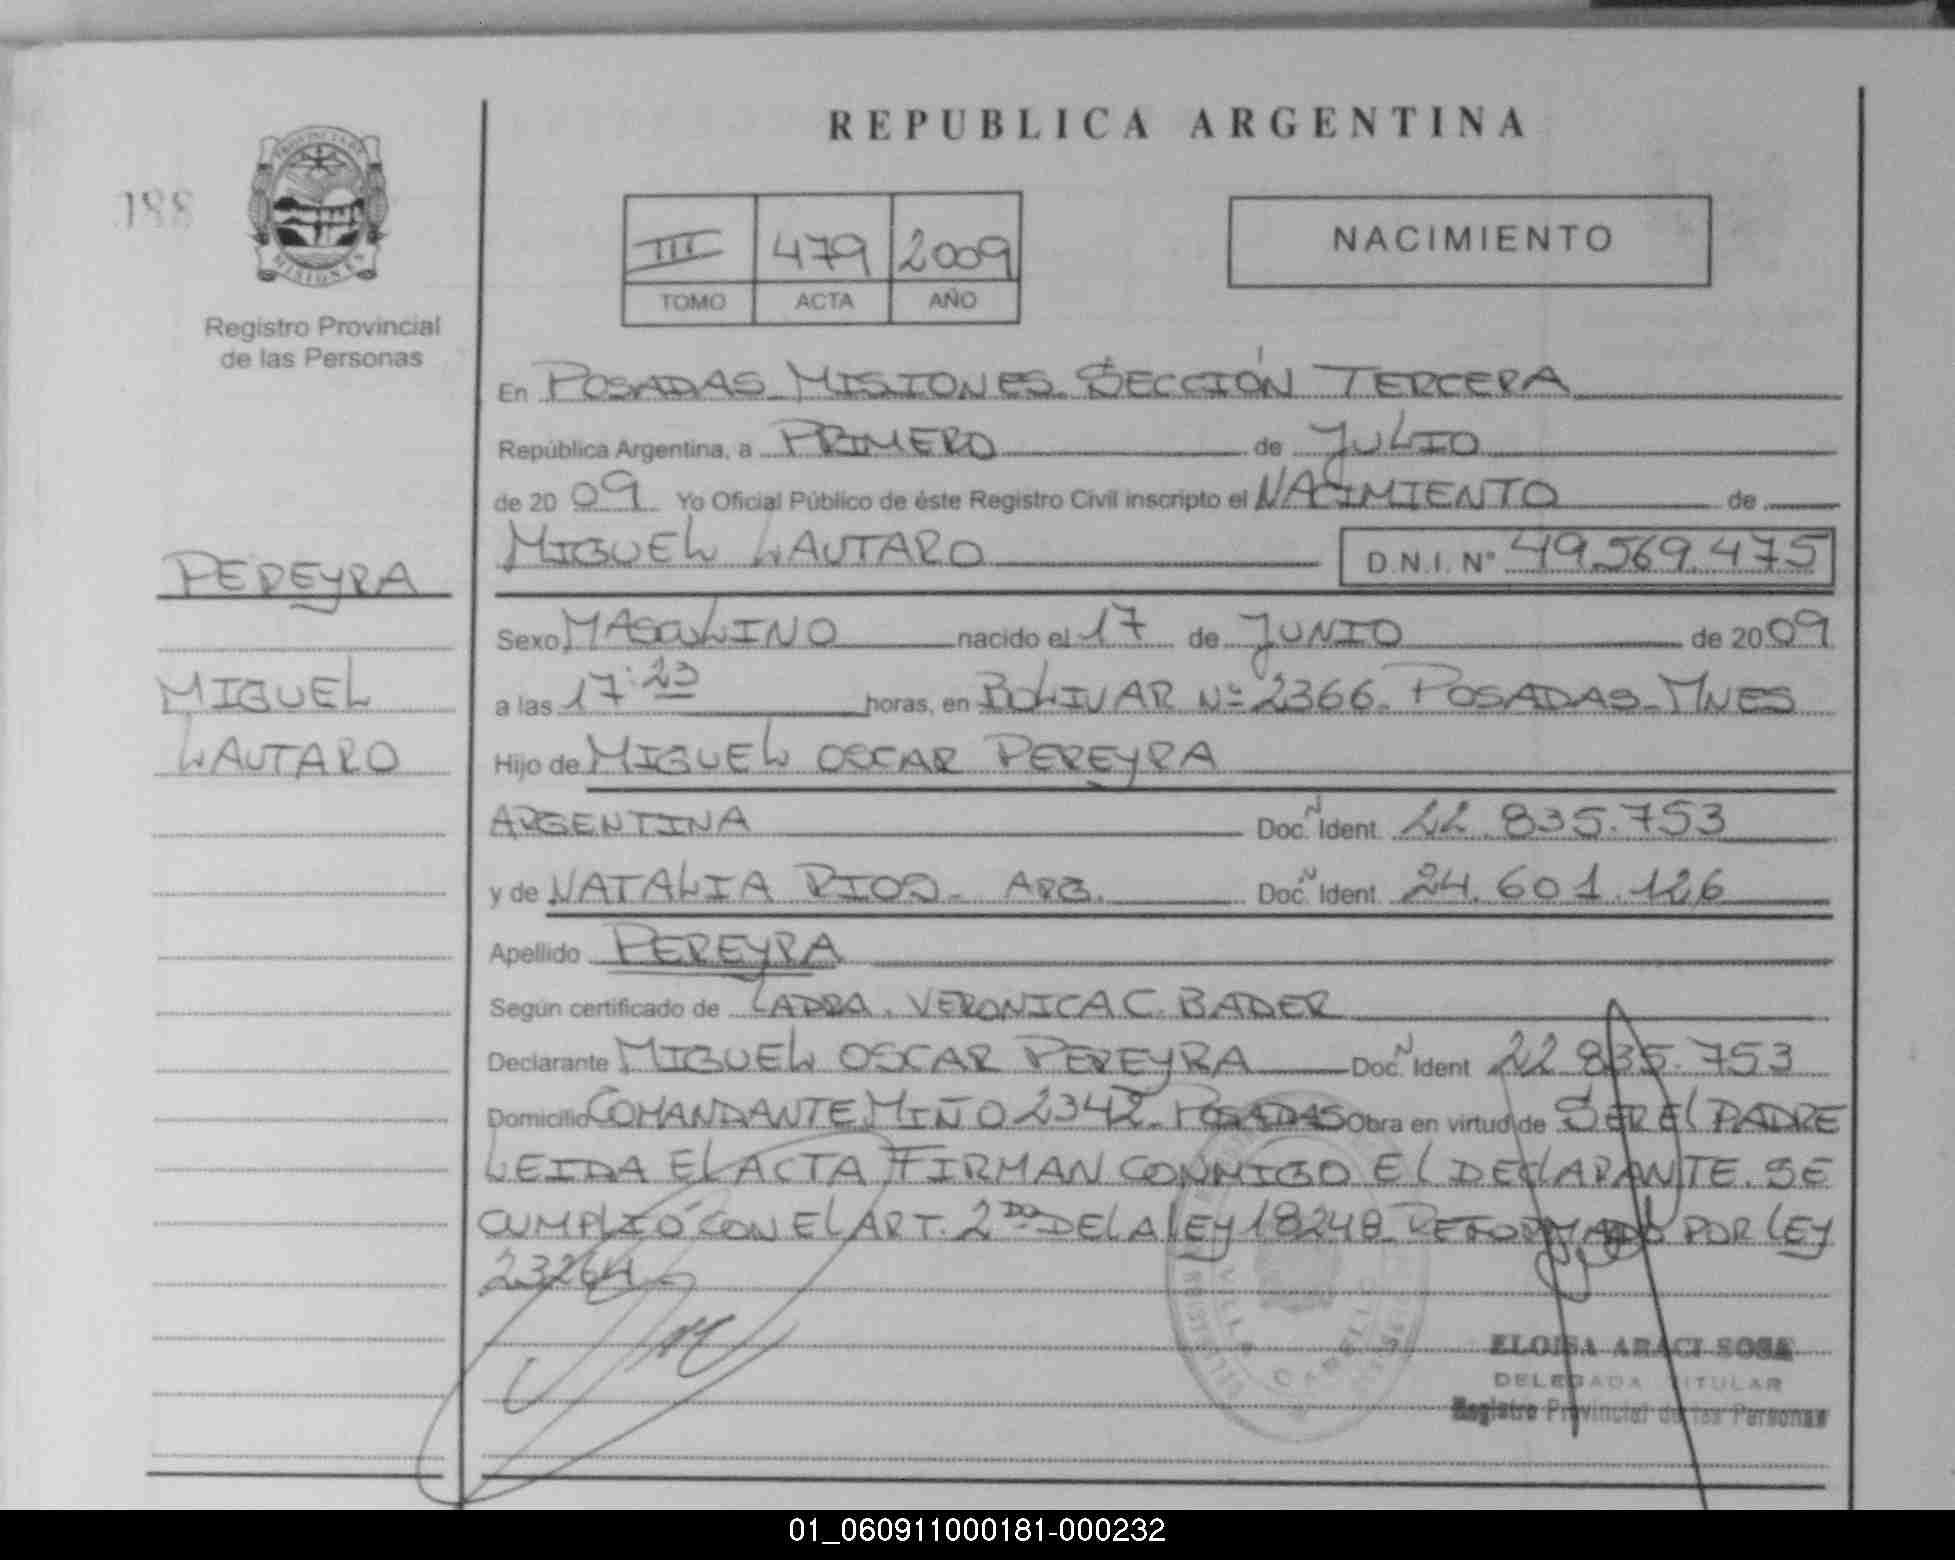 REPUBLICA ARGENTINA
188
PROVINCIA DE
MISIONES
Registro Provincial
de las Personas
III 479 2009
TOMO ACTA AÑO
NACIMIENTO
En POSADAS_MISIONES_SECCIÓN TERCERA
República Argentina, a PRIMERO de JULIO
de 2009 Yo Oficial Público de éste Registro Civil inscripto el NACIMIENTO de
MIGUEL LAUTARO D.N.I. N° 49.569.475
PEREYRA
MIGUEL
LAUTARO
Sexo MASCULINO nacido el 17 de JUNIO de 2009
a las 17:23 horas, en BOLIVAR Nº 2366_POSADAS_MNES
Hijo de MIGUEL OSCAR PEREYRA
ARGENTINA Doc. N Ident. 22.835.753
y de NATALIA RIOS_ ARG. Doc. N Ident. 24.601.126
Apellido PEREYRA
Según certificado de LA DRA. VERONICA C. BADER
Declarante MIGUEL OSCAR PEREYRA Doc. N Ident 22.835.753
Domicilio COMANDANTE MIÑO 2342_POSADAS Obra en virtud de SER EL PADRE
LEIDA EL ACTA FIRMAN CONMIGO EL DECLARANTE. SE
CUMPLIÓ CON EL ART. 2DO DE LA LEY 18248_REFORMADO POR LEY
23264_
VILLA CABELLO
ELOISA ARACI SOSA
DELEGADA TITULAR
Registro Provincial de las Personas
01_060911000181-000232